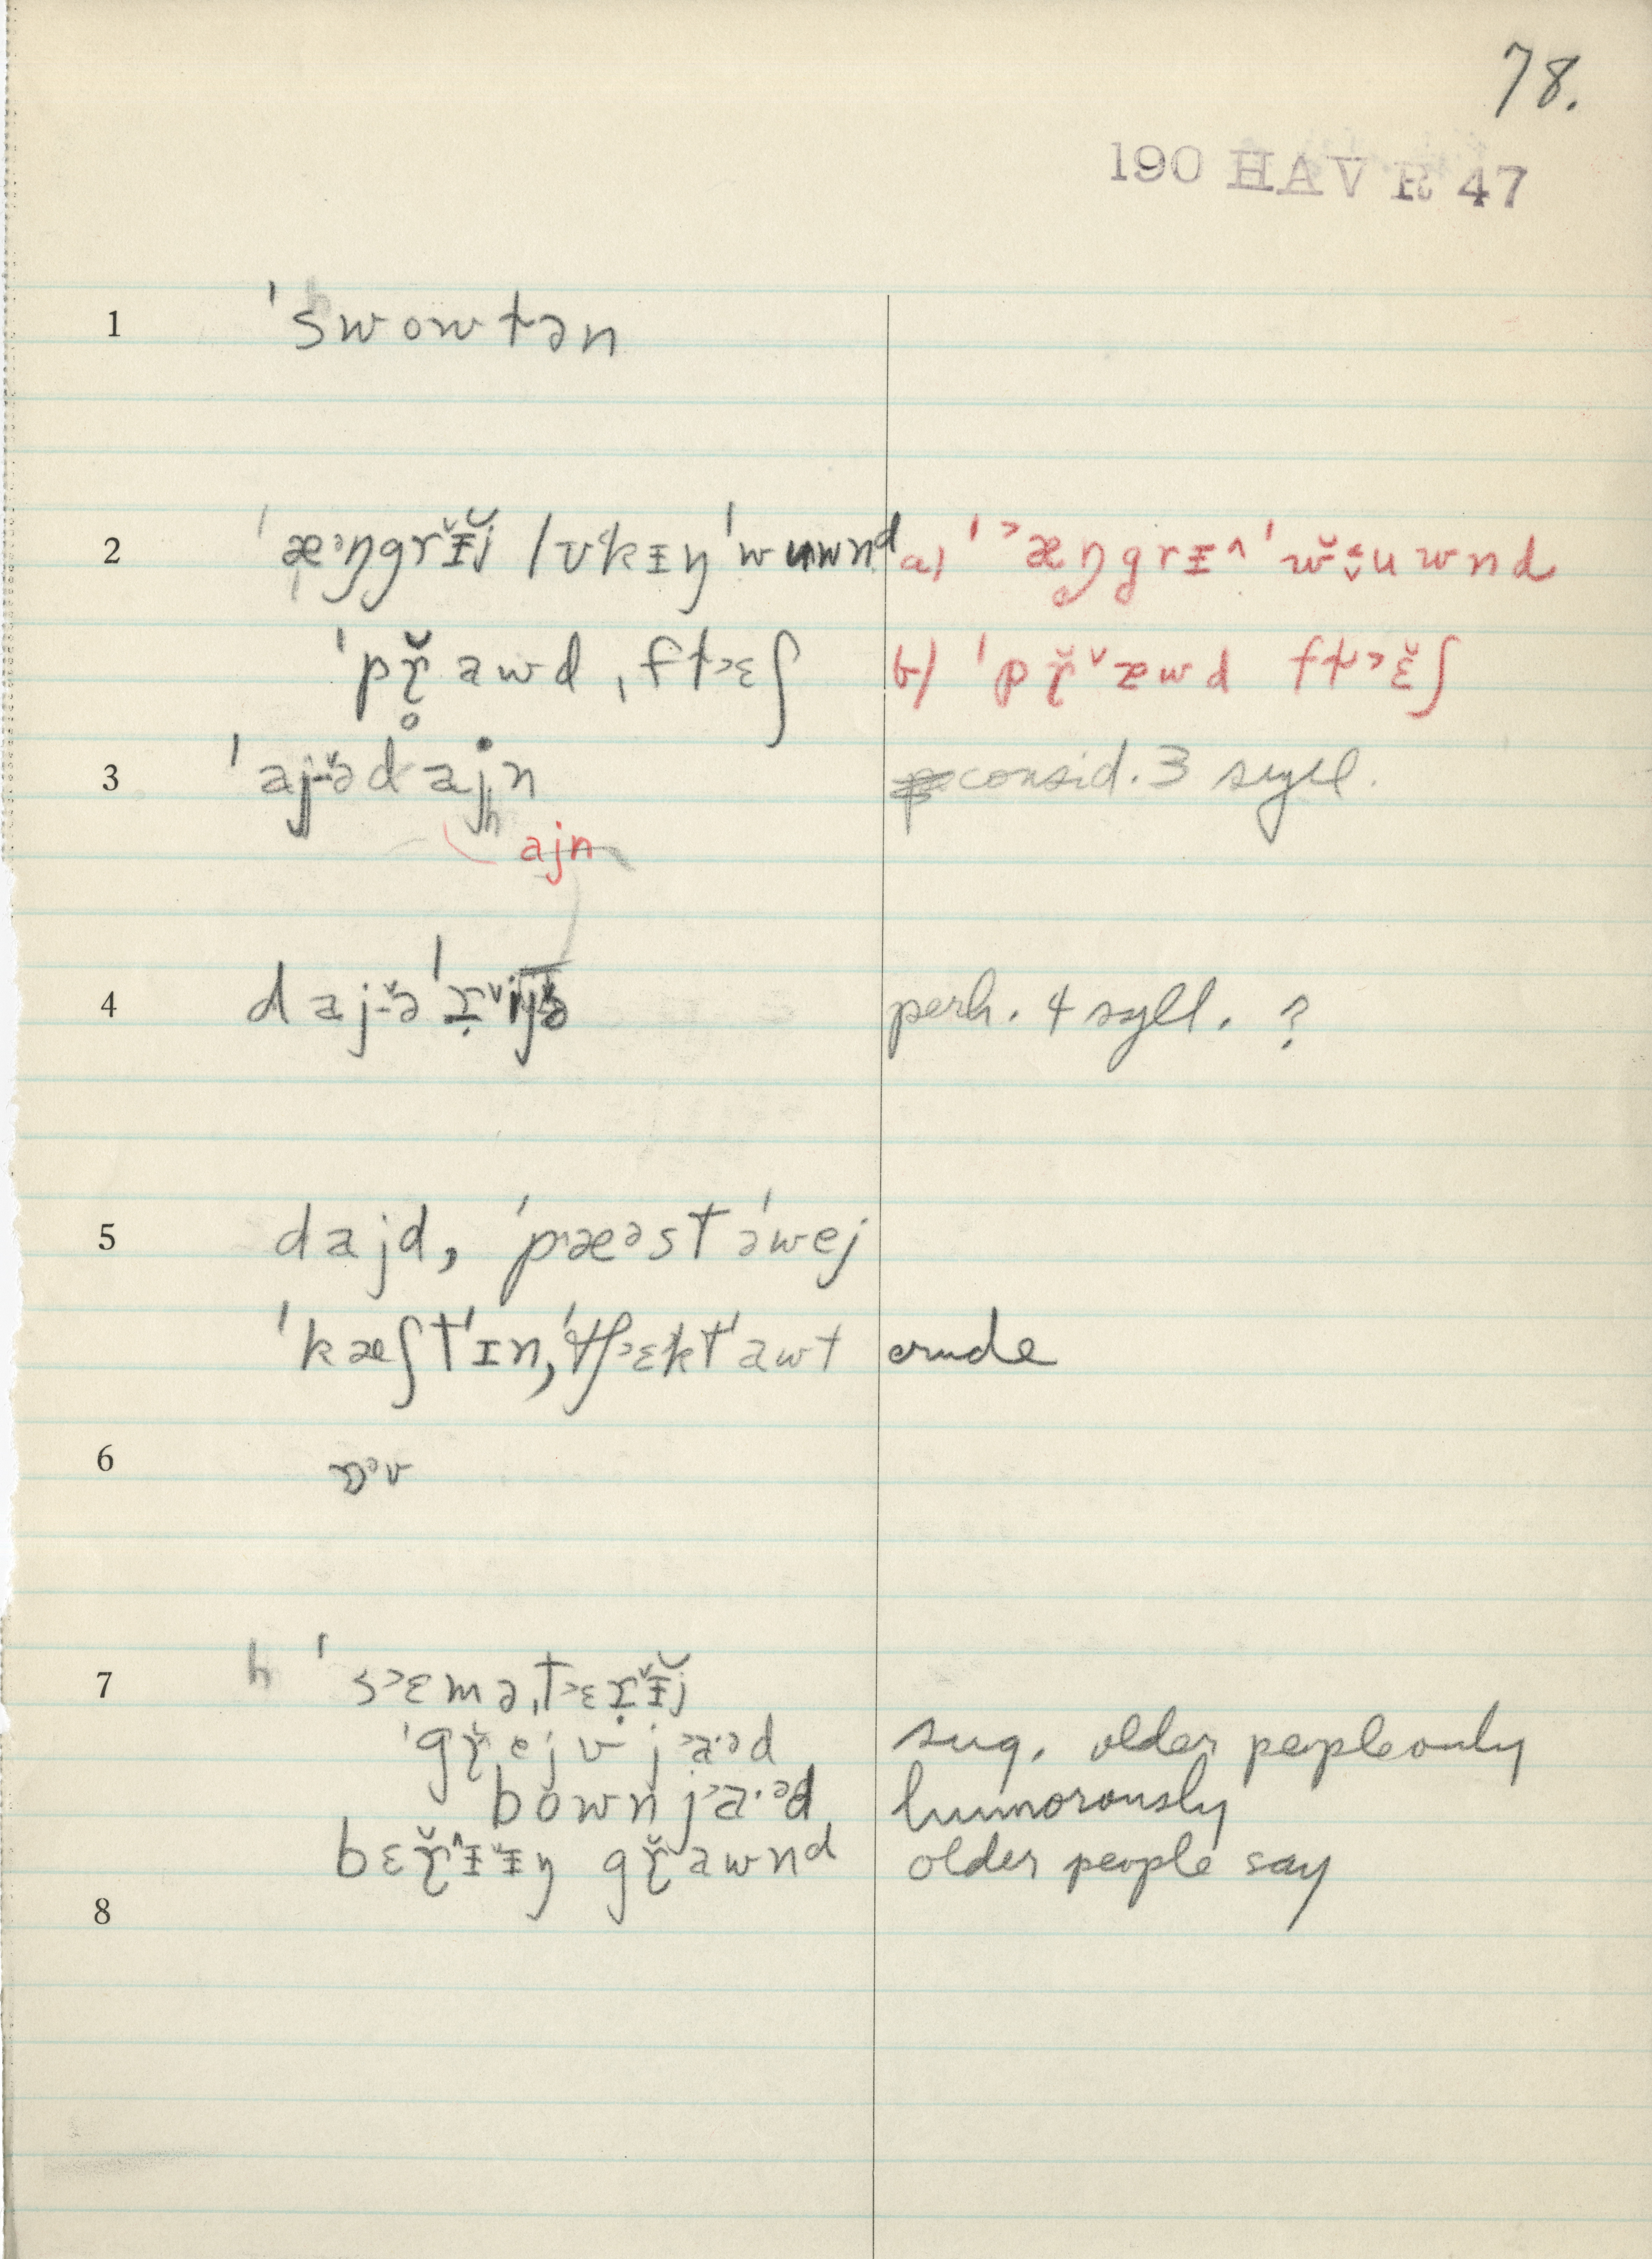 78.
190 HAV R 47
1 ˈswowtən
2 ˈæᵊŋgrɪ̵̆j lʊkɪ̵ŋ ˈwuwnd a) ˈ˃æŋgrɪ̵^ ˈw̆ uwnd
ˈpɽ̆awd ˌft˃ɛʃ b) ˈpɽ̆˅æwd ft˃ɛ̆ʃ
3 ˈaj-ə̆dajn consid. 3 syll.
ajn
4 daj-ə̆ ˈ perh. 4 syll. ?
5 dajd, ˈpæəst əˈwej
ˈkæʃt ˈɪn, ˈtʃ˃ɛkt ˈawt crude
6 ɒᵊv
7 h ˈs˃ɛməˌt˃ɛɽɪ̵̆j
ˈgɽ̆ejvj˃a·əd sug. older people only
bownj˃a·əd humorously
bɛɽ̆^ɪ̵ɪ̵ŋ gɽ̆awnd older people say
8